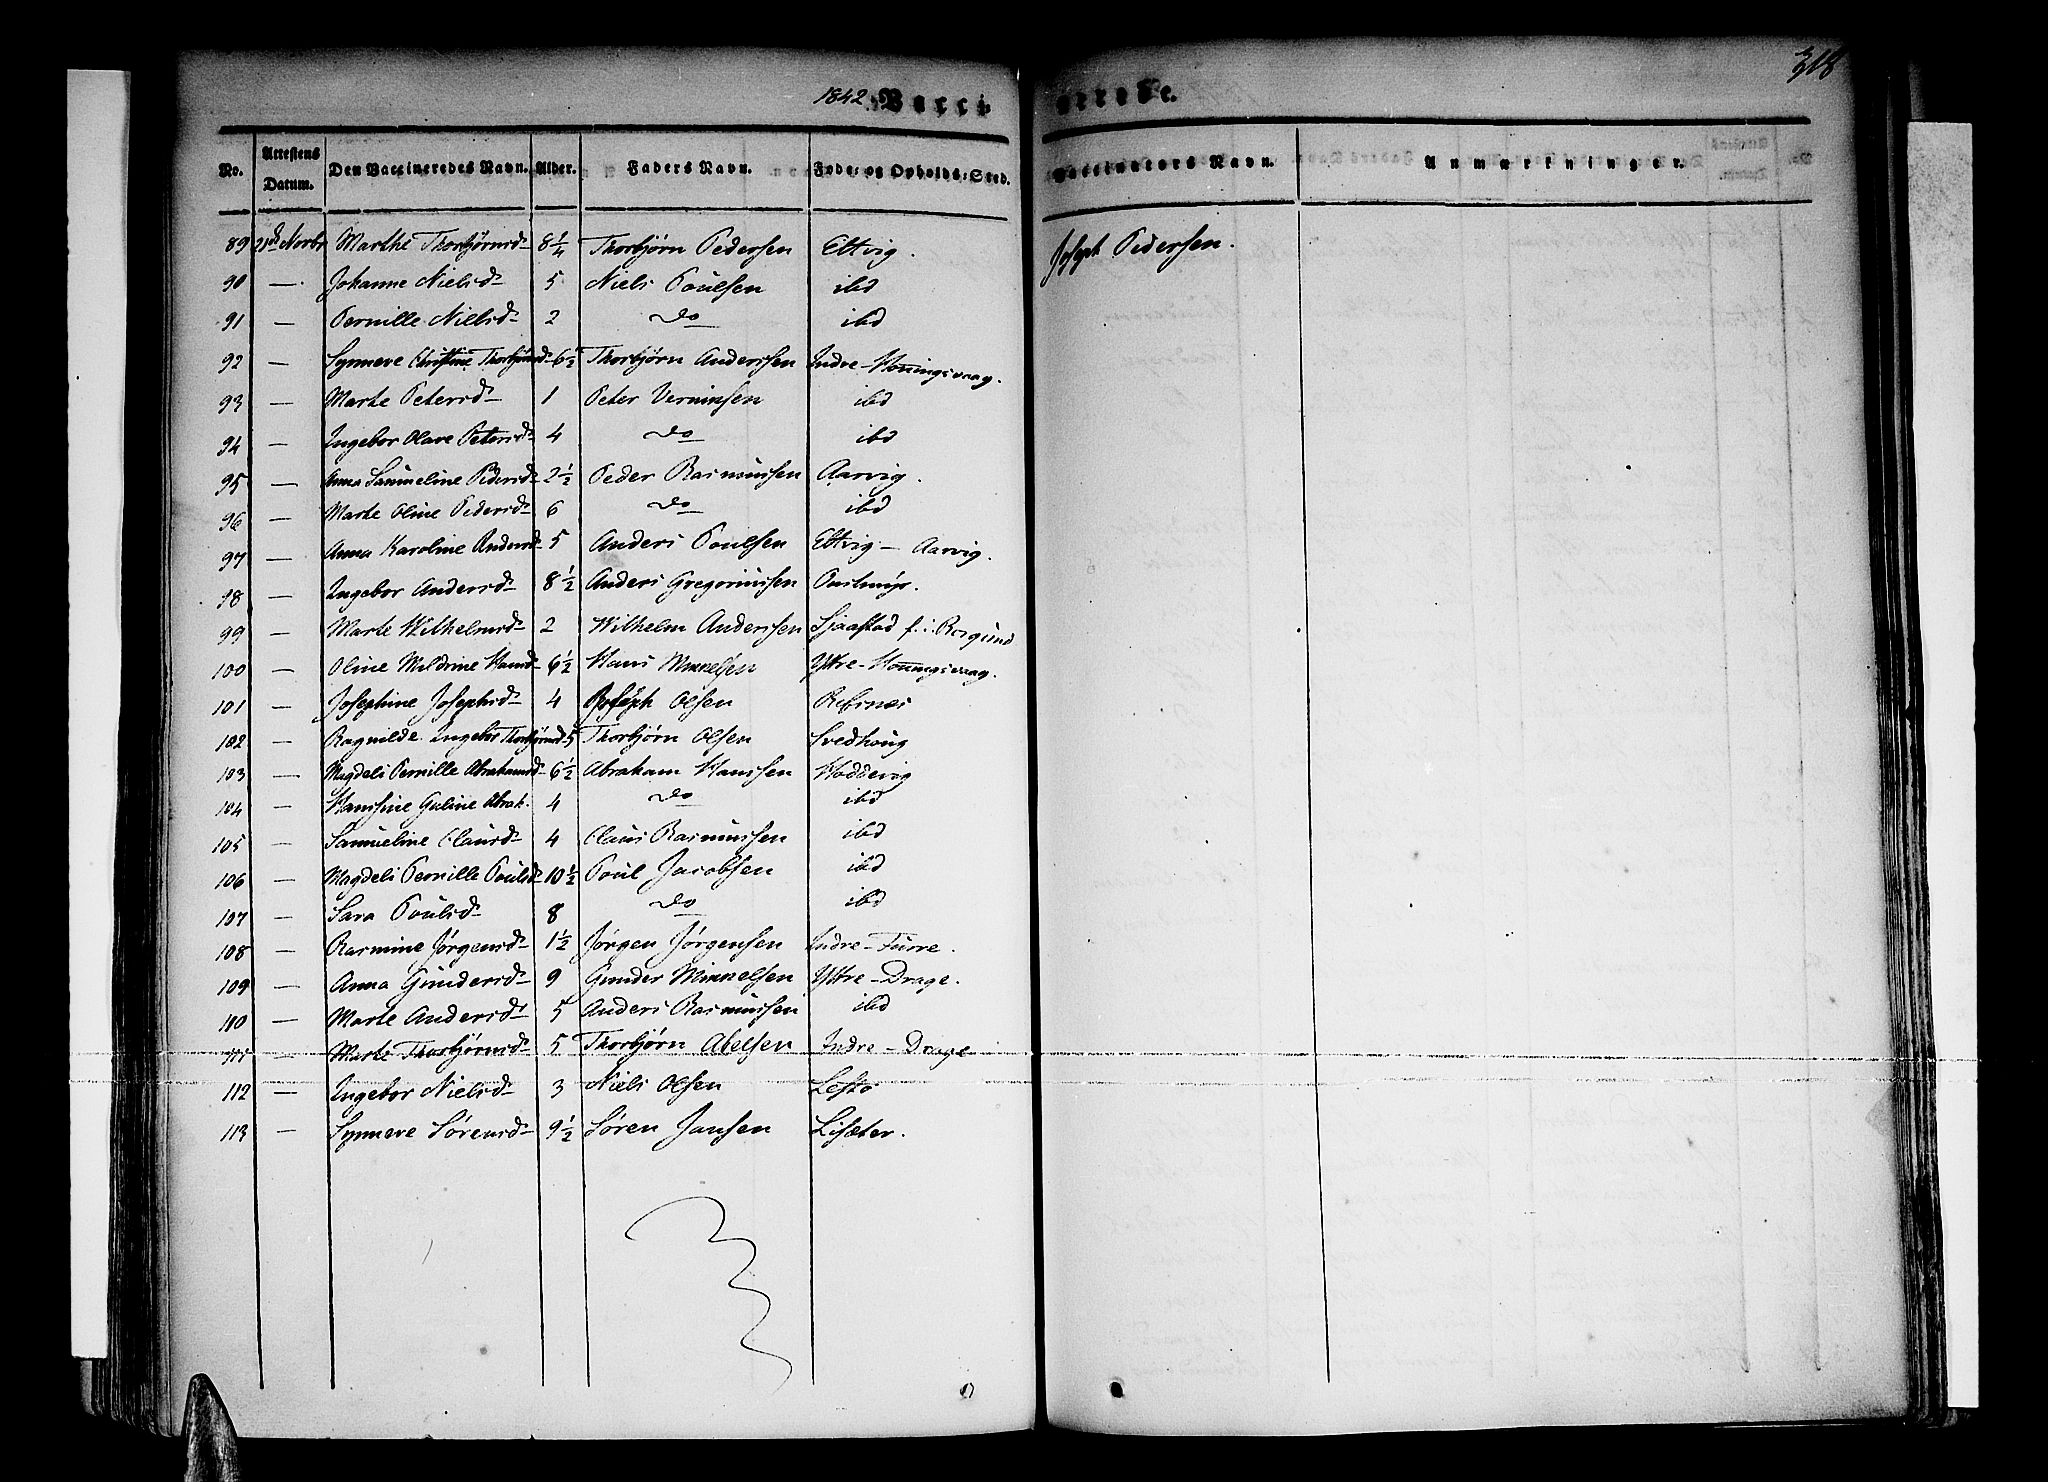 318
1842. Vacci nerede.
No. Attestens Datum. Den Vaccineredes Navn. Alder. Faders Navn. Føde- og Opholds-Sted. Vaccinateurs Navn. Anmærkninger.
89 21de Novbr Marthe Thorbjørnsd 8 1/4 Thorbjørn Pedersen Ettvig. Joseph Pedersen.
90 — Johanne Nielsd 5 Niels Poulsen ibd
91 — Pernille Nielsd 2 do ibd
92 — Synneve Christine Thorbjørnsd 6 1/2 Thorbjørn Anderssen Indre-Honningsvaag.
93 — Marte Petersd 1 Peter Verninsen ibd
94 — Ingebor Olave Petersd 4 do ibd
95 — Anna Samueline Pedersd 2 1/2 Peder Rasmussen Aarvig.
96 — Marte Oline Pedersd 6 do ibd
97 — Anna Karoline Andersd 5 Anders Poulsen Ettvig - Aarvig.
98 — Ingebor Andersd 8 1/2 Anders Gregoriussen
99 — Marte Wilhelmsd 2 Wilhelm Anderssen Sjaastad f. i Borgund
100 — Oline Meldrine Hansd 6 1/2 Hans Mikkelsen Yttre-Honningsvaag.
101 — Josephine Josephsd 4 Joseph Olsen Refsnes
102 — Ragnilde Ingebor Thorbjørnsd 5 Thorbjørn Olsen Svedhoug
103 — Magdeli Pernille Abrahamsd 6 1/2 Abraham Hanssen Hoddevig
104 — Hanssine Guline Abrah. 4 do ibd
105 — Samueline Clausd 4 Claus Rasmussen ibd
106 — Magdeli Pernille Poulsd 10 1/2 Poul Jacobsen ibd
107 — Sara Poulsd 8 do ibd
108 — Rasmine Jørgensd 1 1/2 Jørgen Jørgensen Indre-Furre.
109 — Anna Gundersd 9 Gunder Mikkelsen Yttre-Drage.
110 — Marte Andersd 5 Anders Rasmussen ibd
111 — Marte Thorbjørnsd 5 Thorbjørn Abelsen Indre-Drage
112 — Ingebor Nielsd 3 Niels Olsen Lesto
113 — Synneve Sørensd 9 1/2 Søren Jansen Lisæter.